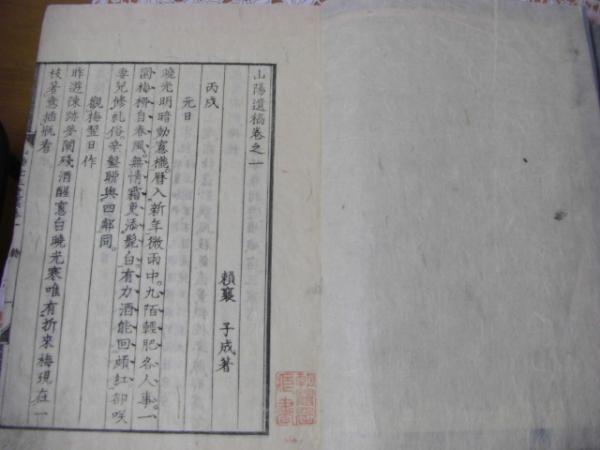 山陽遺稿卷之一
賴襄 子成著
丙戌
元日
曉光明暗動窻櫳曆入新年微雨中九陌輕肥各人事一
園梅柳自春風無情霜更添髭白有力酒能回頰紅却咲
妻兒修乱俗辛盤聊與四鄰同
觀梅翌日作
昨遊陳跡夢闌殘酒醒窻白曉光寒唯有折來梅現在一
枝著意插瓶看